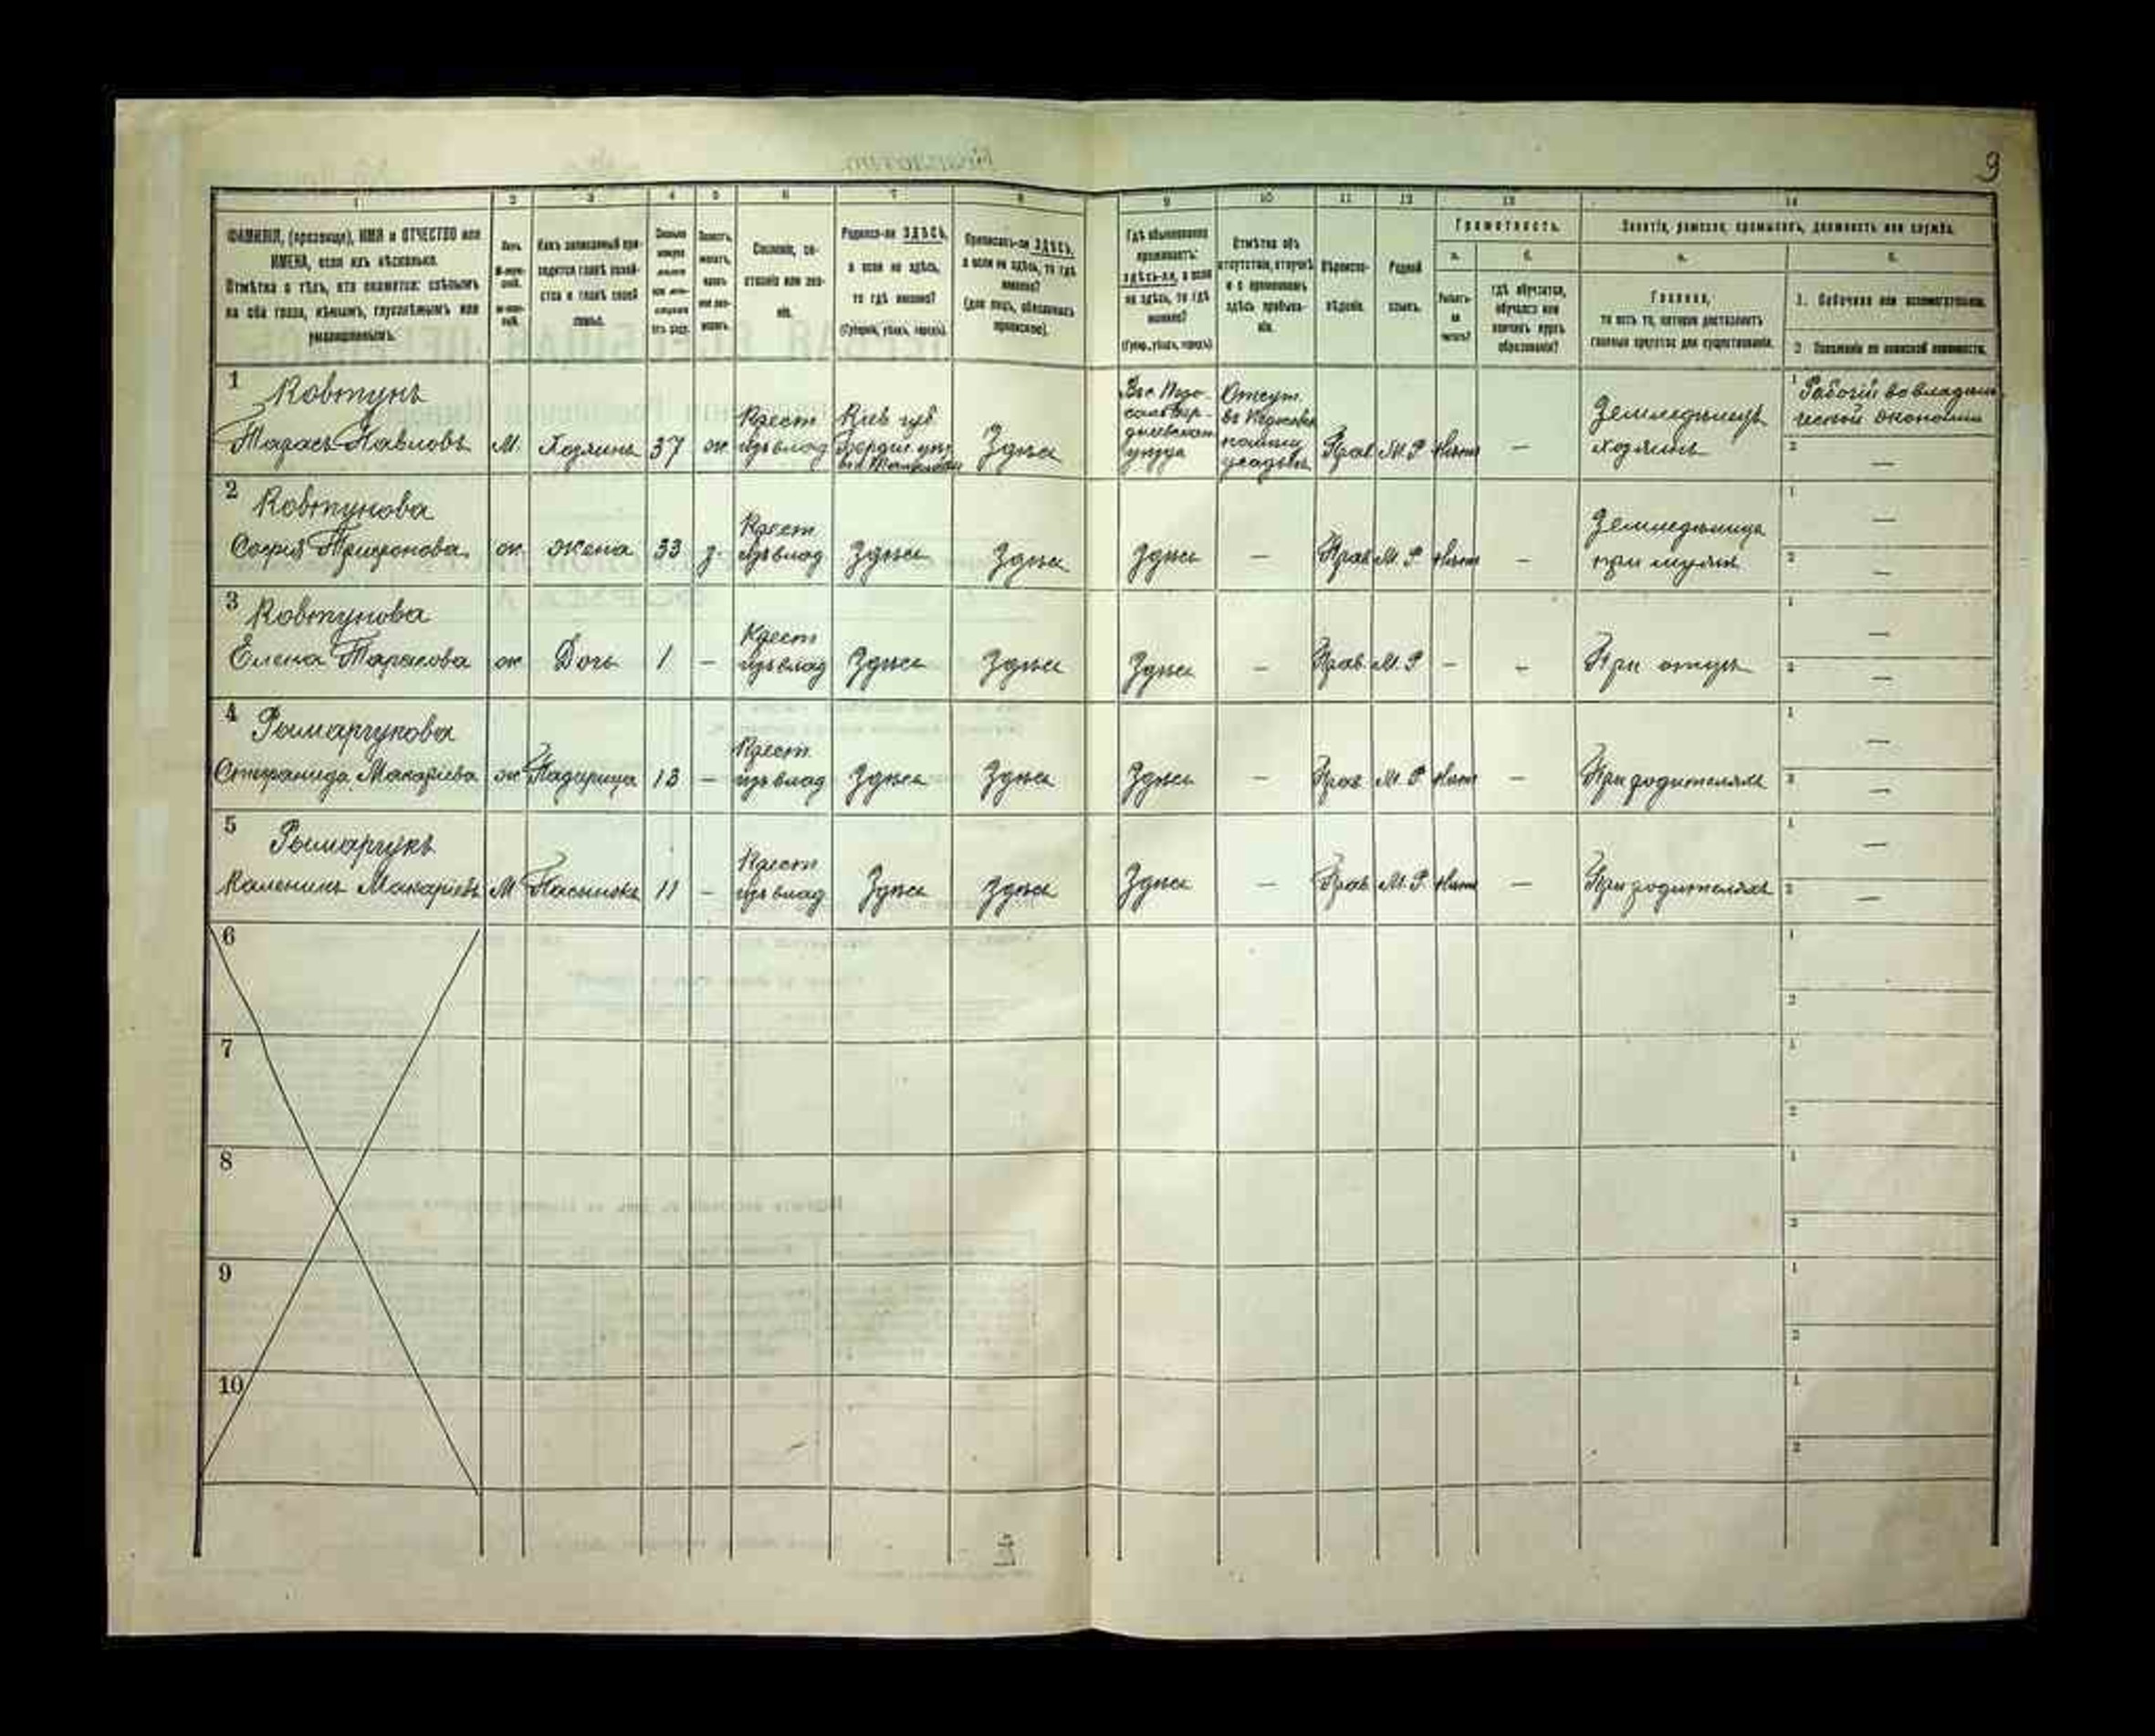 9
1 2 3 4 5 6 7 8 9 10 11 12 13 14
ФАМИЛІЯ, (прозвище), ИМЯ и ОТЧЕСТВО или
ИМЕНА, если ихъ нѣсколько.
Отмѣтка о тѣхъ, кто окажется: слѣпымъ
на оба глаза, нѣмымъ, глухонѣмымъ или
умалишеннымъ.
Полъ.
Какъ записанный при-
ходится главѣ хозяй-
ства и главѣ своей
семьи.
Сословіе, со-
стояніе или зва-
ніе.
Родился-ли ЗДѢСЬ,
а если не здѣсь,
то гдѣ именно?
(Губернія, уѣздъ, городъ).
Приписанъ-ли ЗДѢСЬ,
а если не здѣсь, то гдѣ
именно?
(для лицъ, обязанныхъ
припискою).
Гдѣ обыкновенно
проживаетъ:
здѣсь-ли, а если
не здѣсь, то гдѣ
именно?
(Губер., уѣздъ, городъ).
Отмѣтка объ
отсутствіи, отлучкѣ
и о временномъ
здѣсь пребыва-
ніи.
Вѣроиспо-
вѣданіе.
Родной
языкъ.
Грамотность.
а. б.
Умѣетъ-
ли
читать?
гдѣ обучается,
обучался или
кончилъ курсъ
образованія?
Занятіе, ремесло, промыселъ, должность или служба.
а. б.
Главное,
то есть то, которое доставляетъ
главныя средства для существованія.
1. Побочное или вспомогательное.
2. Положеніе по воинской повинности.
1 Ковтунъ
Тарасъ Павловъ М. Хозяинъ 37 ж Крест. изъ влад Кіев губ Здѣсь Отсут. Прав М. Р нѣтъ — Земледѣлецъ хозяинъ
1 Рабочій во владѣль
ческой экономіи
2 —
2 Ковтунова
Софія Трифонова ж. жена 33 з. Крест изъ влад Здѣсь Здѣсь Здѣсь — Прав М. Р нѣтъ — Земледѣлица при мужѣ
1 —
2 —
3 Ковтунова
Елена Тарасова ж Дочь 1 — Крест изъ влад Здѣсь Здѣсь Здѣсь — Прав. М. Р — — При отцѣ
1 —
2 —
4 Рымарчукова
Макаріева ж Падчерица 13 — Крест. изъ влад Здѣсь Здѣсь Здѣсь — Прав М. Р нѣтъ — При родителяхъ
1 —
2 —
5 Рымарчукъ
Каленикъ Макаріевъ М Пасынокъ 11 — Крест изъ влад Здѣсь Здѣсь Здѣсь — Прав М. Р. нѣтъ — При родителяхъ
1 —
2 —
6 1
2
7 1
2
8 1
2
9 1
2
10 1
2